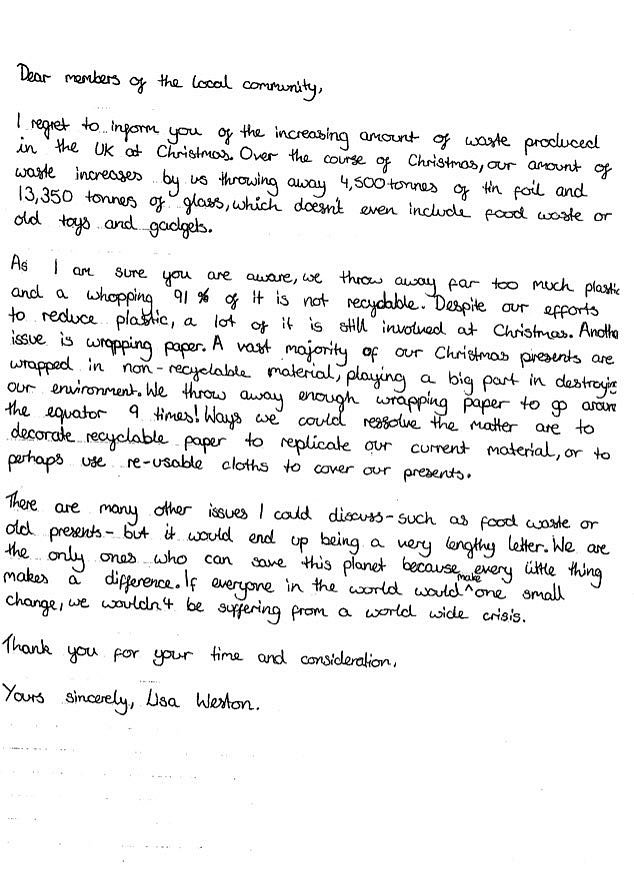 Dear members of the local community,
I regret to inform you of the increasing amount of waste produced
in the UK at Christmas. Over the course of Christmas, our amount of
waste increases by us throwing away 4,500 tonnes of tin foil and
13,350 tonnes of glass, which doesn't even include food waste or
old toys and gadgets.
As I am sure you are aware, we throw away far too much plastic
and a whopping 91% of it is not recyclable. Despite our efforts
to reduce plastic, a lot of it is still involved at Christmas. Anothe
issue is wrapping paper. A vast majority of our Christmas presents are
wrapped in non-recyclable material, playing a big part in destroying
our environment. We throw away enough wrapping paper to go aroun
the equator 9 times! Ways we could ressolve the matter are to
decorate recyclable paper to replicate our current material, or to
perhaps use re-usable cloths to cover our presents.
There are many other issues I could discuss - such as food waste or
old presents - but it would end up being a very lengthy letter. We are
the only ones who can save this planet because every little thing
makes a difference. If everyone in the world would make one small
change, we wouldn't be suffering from a world wide crisis.
Thank you for your time and consideration,
Yours sincerely, Lisa Weston.